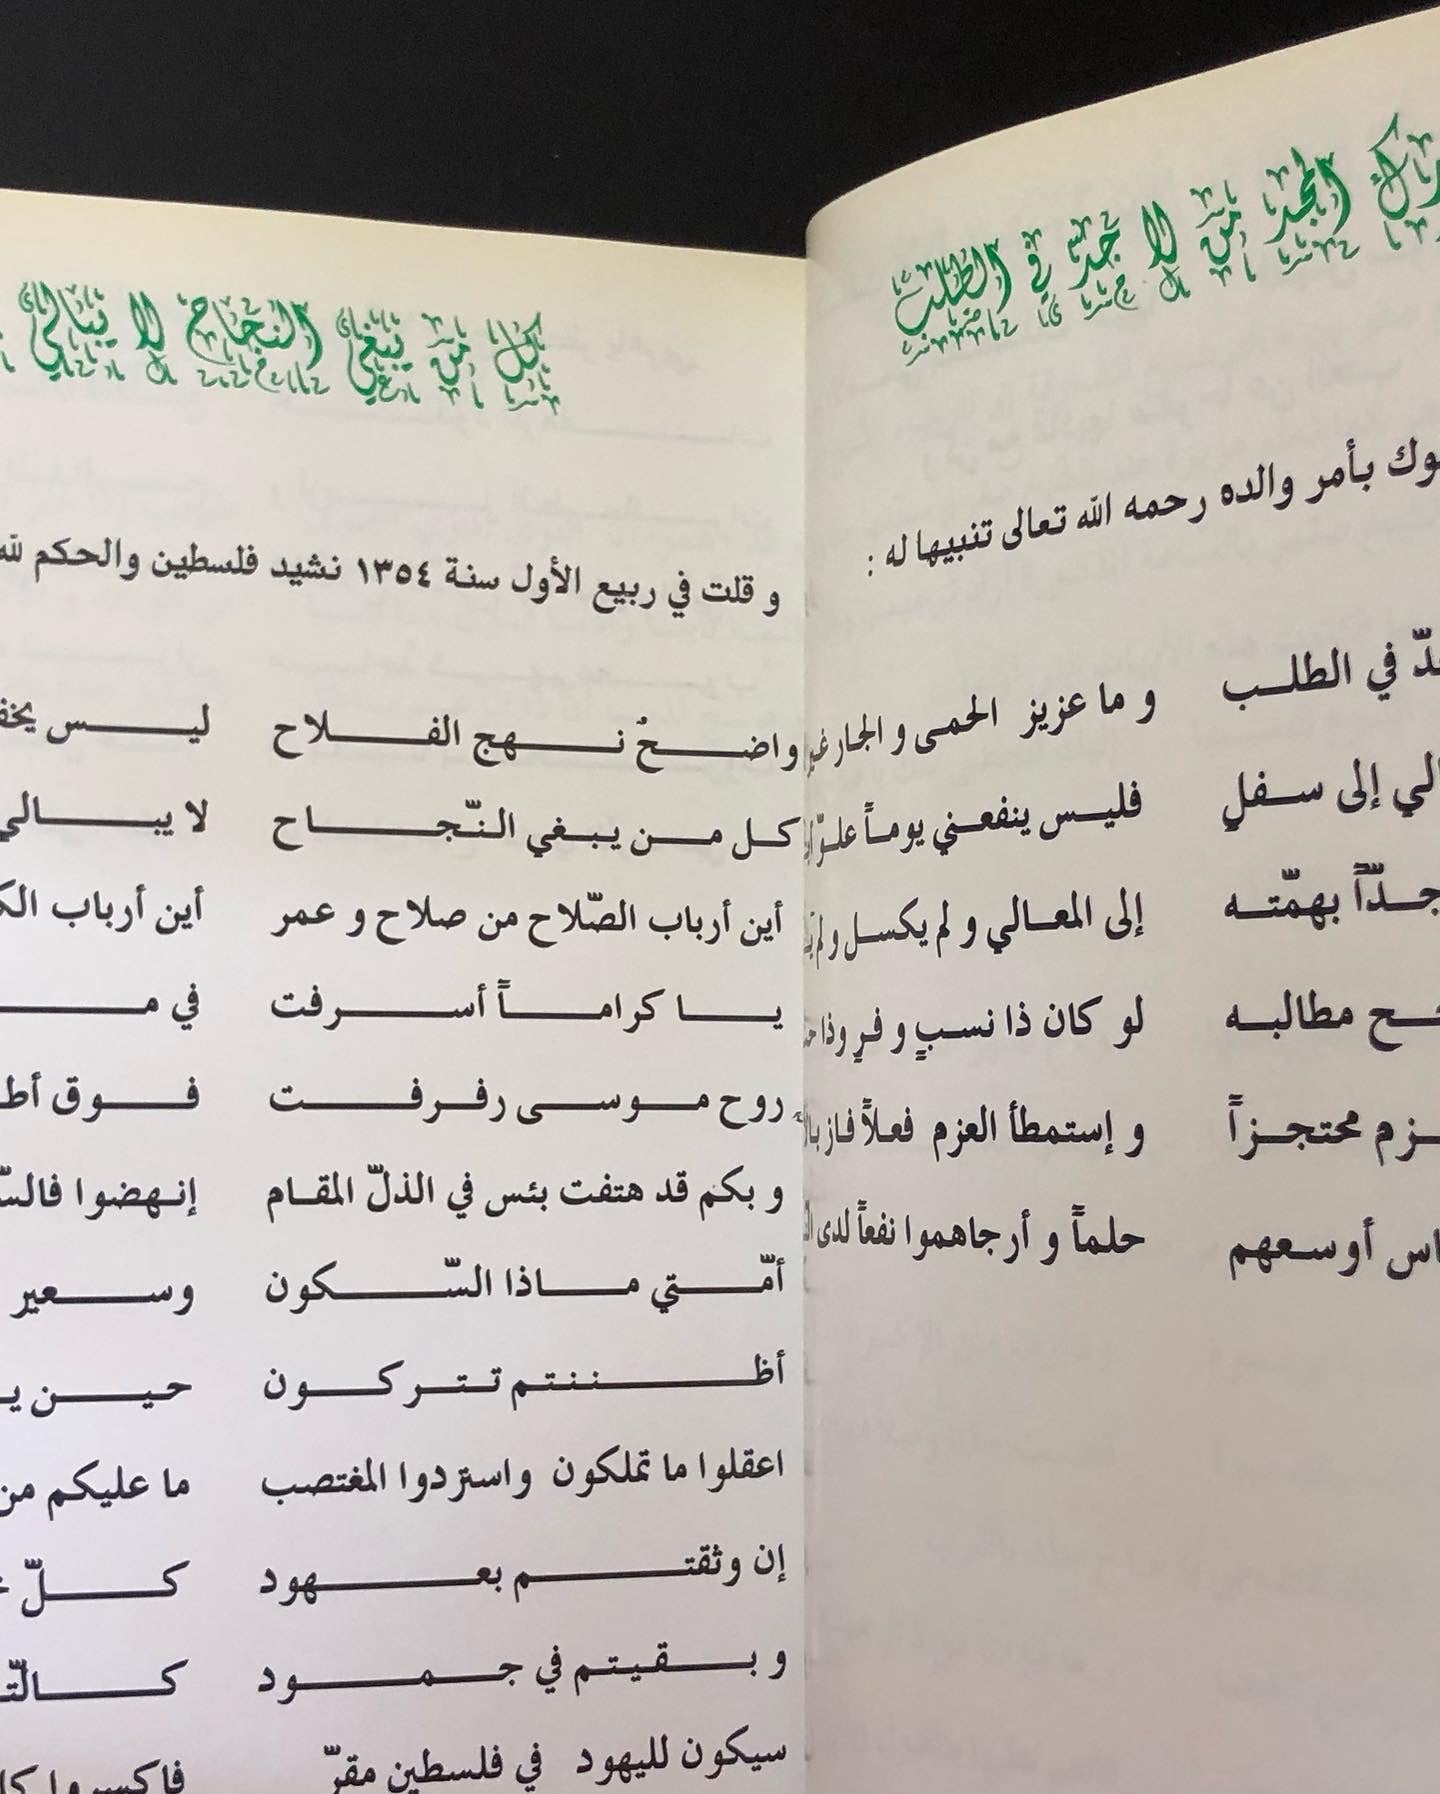 رك المجد من لا جد في الطلب
بأمر والده رحمه الله تعالى تنبيها له :
في الطلب و ما عزيز الحمى و الجار
إلى سفلٍ فليس ينفعني يوماً
جدّاً بهمّته إلى المعالي و لم يكسل و لم
مطالبه لو كان ذا نسبٍ و فرٍ وذا
محتجزاً و إستمطأ العزم فعلاً فاز
أوسعهم حلماً و أرجاهموا نفعاً لدى
كل من يبغي النجاح لا يبالي
و قلت في ربيع الأول سنة ١٣٥٤ نشيد فلسطين والحكم لله
واضحٌ نهج الفلاح ليس
كل من يبغي النّجاح لا يبالي
أين أرباب الصّلاح من صلاح و عمر أين أرباب
يا كراماً أسرفت في
روح موسى رفرفت فوق
و بكم قد هتفت بئس في الذلّ المقام إنهضوا
أمّتي ماذا السّكون وسعير
أظننتم تتركون حين
اعقلوا ما تملكون واستردوا المغتصب ما عليكم من
إن وثقتم بعهود كلّ
و بقيتم في جمود
سيكون لليهود في فلسطين مقرّ فاكسروا